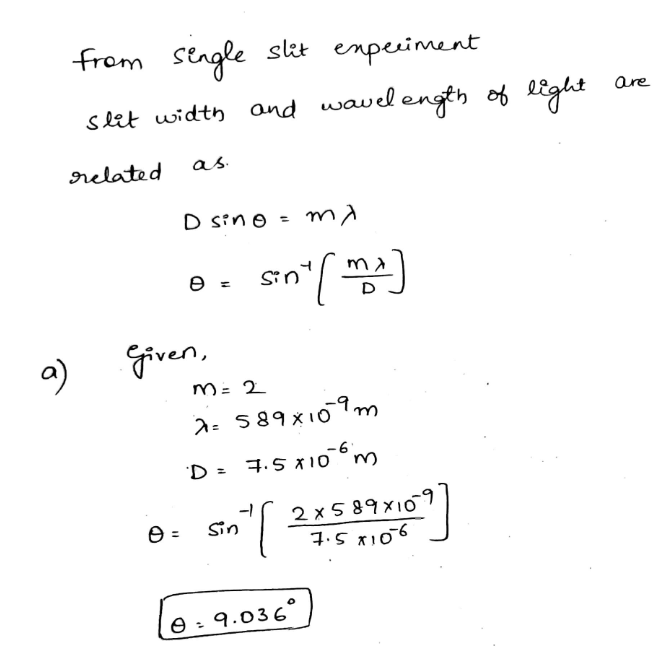 from single slit experiment
slit width and wavelength of light are
related as.
D sin θ = mλ
θ = sin⁻¹[mλ/D]
a) Given,
m = 2
λ = 589 × 10⁻⁹ m
D = 7.5 × 10⁻⁶ m
θ = sin⁻¹[2 × 589 × 10⁻⁹ / 7.5 × 10⁻⁶]
θ = 9.036°